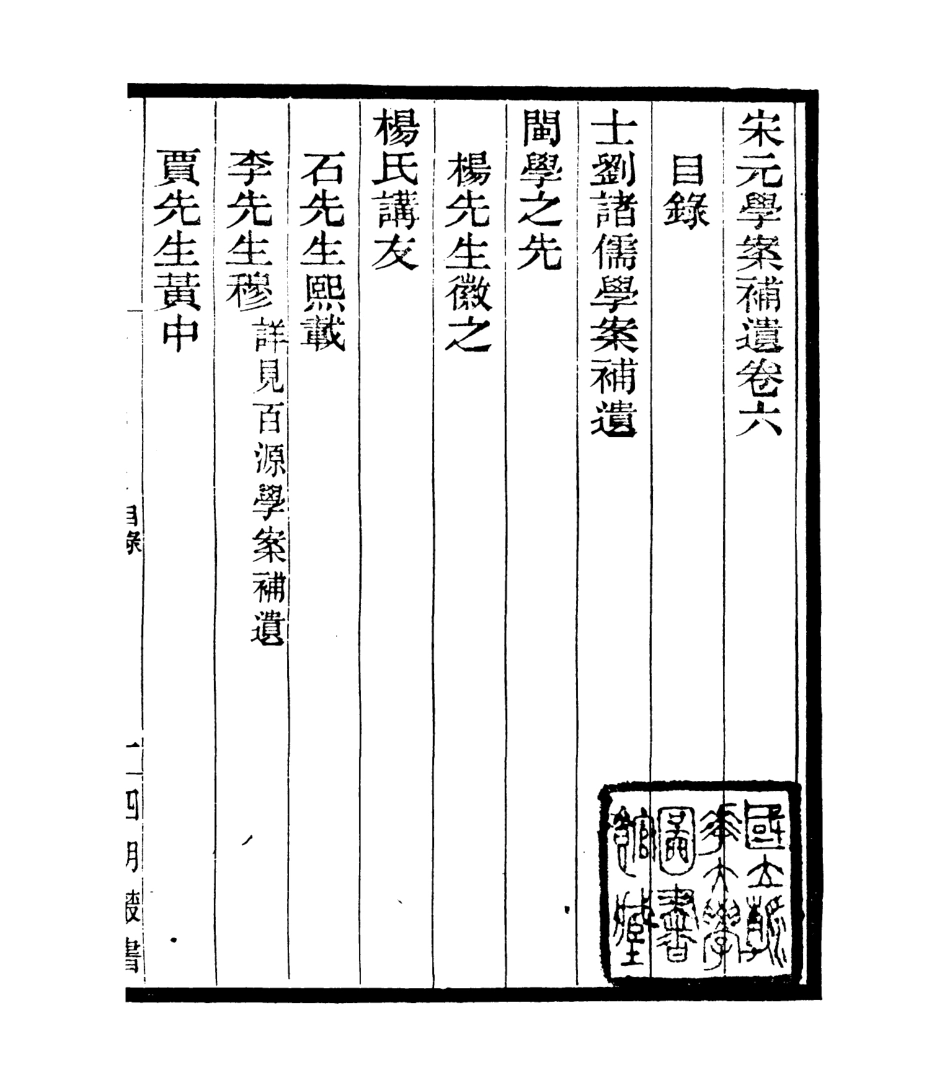 宋元學案補遺卷六
目錄
士劉諸儒學案補遺
閩學之先
楊先生徽之
楊氏講友
石先生熙載
李先生穆 詳見百源學案補遺
賈先生黃中
目錄
一 四明叢書
國立
大學
圖書
館